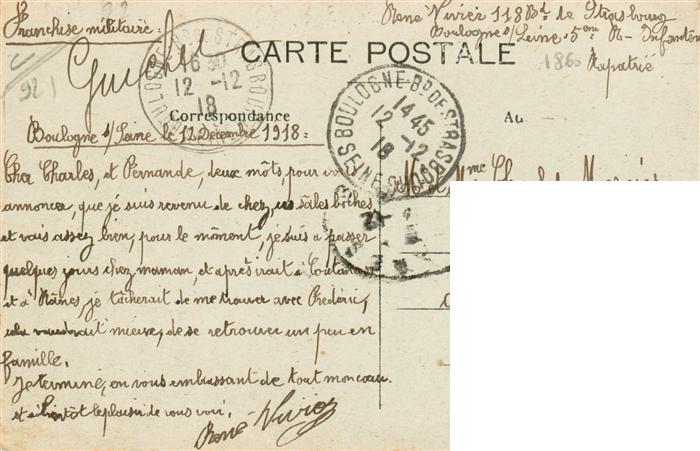 Franchise militaire.
René Vivier 118 Bd de Strasbourg
Boulogne s/Seine 5eme R- Infanterie
Rapatrié
1865
921
CARTE POSTALE
Correspondance
Au
BOULOGNE-Bd DE STRASBOURG
16 30
12 -12
18
BOULOGNE-Bd DE STRASBOURG
14 45
12 -12
18
SEINE
Boulogne s/Seine le 12 Decembre 1918=
Mr et Mme
Cher Charles, et Fernande, deux môts, pour vous
annoncer, que je suis revenu de chez, ces sâles boches
et vais assez bien, pour le môment, je suis a passer
quelques jours chez maman, et après irait à
et à Nânes, je tâcherait de me trouver avec Frédéric,
cela vaudrait mieux, de se retrouver un peu en
famille.
Je termine, en vous embrassant de tout mon coeur
et à bientôt le plaisir de vous voir.
René Vivier